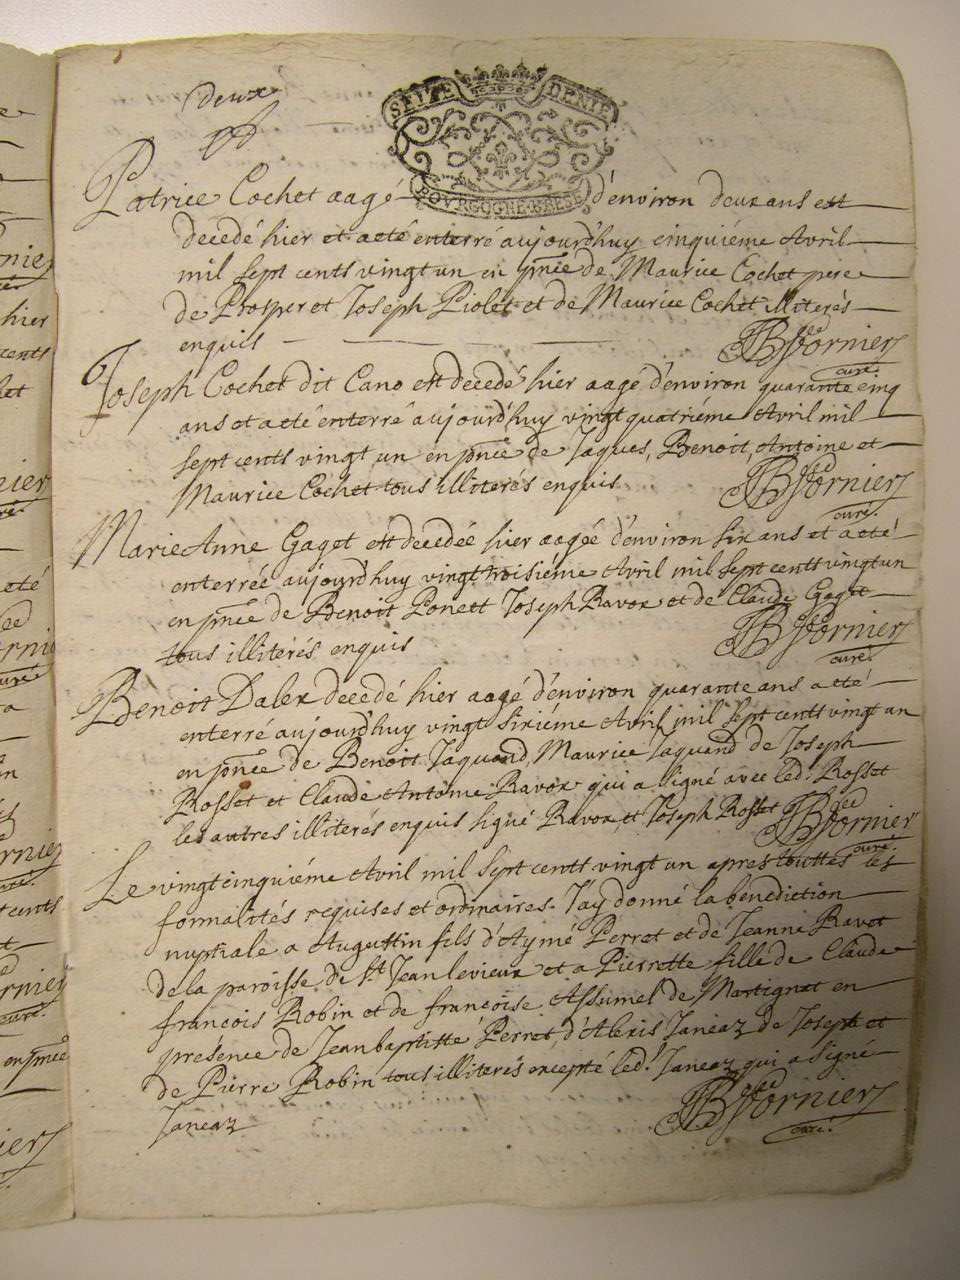 deux
SEIZE DENIE
BOURGOGNE BRESE
Patrice Cochet aagé d'environ deux ans est
decedé hier et a eté enterré aujourd'huy cinquiéme Avril
mil sept cents vingt un en pnce de Maurice Cochet pere
de Prosper et Joseph Piolet et de Maurice Cochet illiterés
enquis
JB Fornier
curé.
Joseph Cochet dit Cano est decedé hier aagé d'environ quarante cinq
ans et a eté enterré aujourd'huy vingt quatriéme Avril mil
sept cents vingt un en pnce de Jaques, Benoit, Antoine et
Maurice Cochet tous illiterés enquis
JB Fornier
curé.
Marie Anne Gaget est decedée hier aagée d'environ six ans et a eté
enterrée aujourd'huy vingt troisiéme Avril mil sept cent vingt un
en pnce de Benoit Ponett Joseph Ravox et de Claude Gaget
tous illiterés enquis
JB Fornier
curé.
Benoit Dalex decedé hier aagé d'environ quarante ans a eté
enterré aujourd'huy vingt sixiéme Avril mil sept cent vingt un
en pnce de Benoit Jaquand, Maurice Jaquand de Joseph
Rosset et Claude Antoine Ravox qui a signé avec led. Rosset
les autres illiterés enquis signé Ravox et Joseph Rosset
JB Fornier
curé.
Le vingt cinquiéme Avril mil sept cents vingt un apres touttes les
formalités requises et ordinaires. J'ay donné la benediction
nuptiale a Augustin fils d'Aymé Perret et de Jeanne Ravet
de la paroisse de St Jean le vieux et a Pierrette fille de Claude
françois Robin et de françoise Assumel de Martignat en
presence de Jean baptiste Perret, d'Alexis Janeaz de Joseph et
de Pierre Robin tous illiterés excepté led. Janeaz qui a signé
Janeaz
JB Fornier
curé.